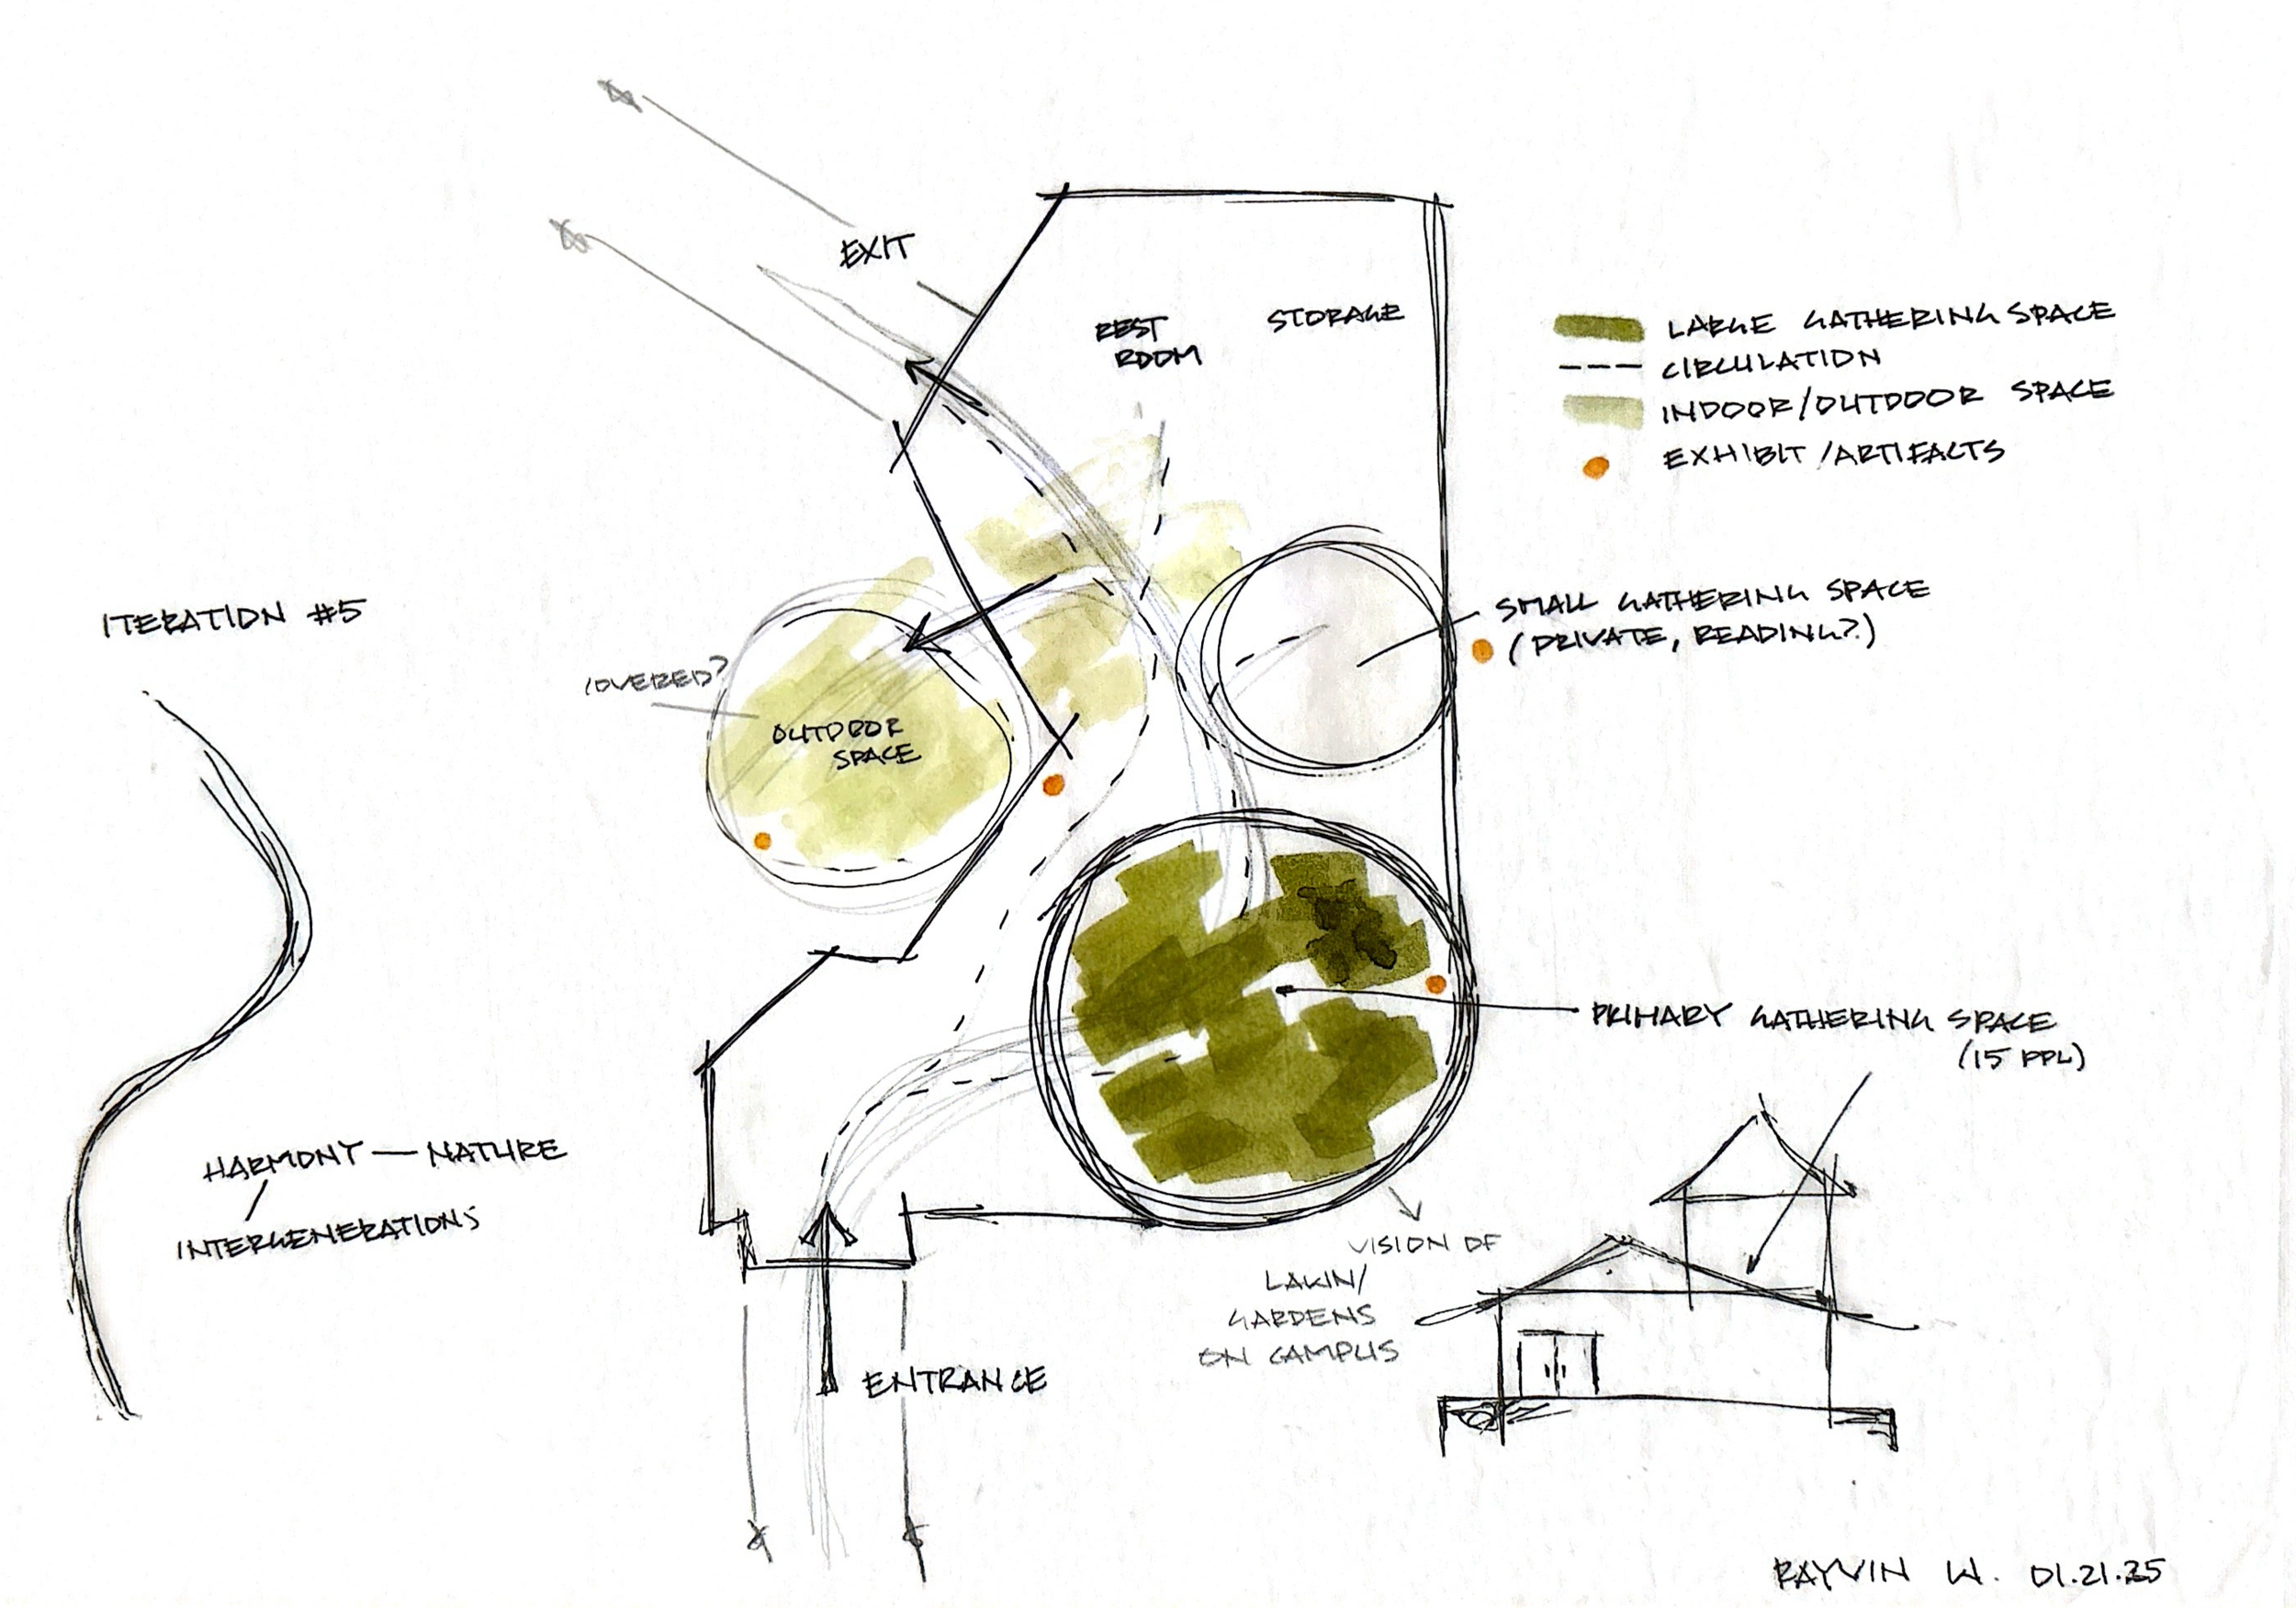 EXIT
REST
ROOM
STORAGE
LARGE GATHERING SPACE
CIRCULATION
INDOOR/OUTDOOR SPACE
EXHIBIT/ARTIFACTS
ITERATION #5
SMALL GATHERING SPACE
(PRIVATE, READING?)
COVERED?
OUTDOOR
SPACE
PRIMARY GATHERING SPACE
(15 PPL)
HARMONY — NATURE
INTERGENERATIONS
VISION OF
LAKIN/
GARDENS
ON CAMPUS
ENTRANCE
RAYVIN W. 01.21.25